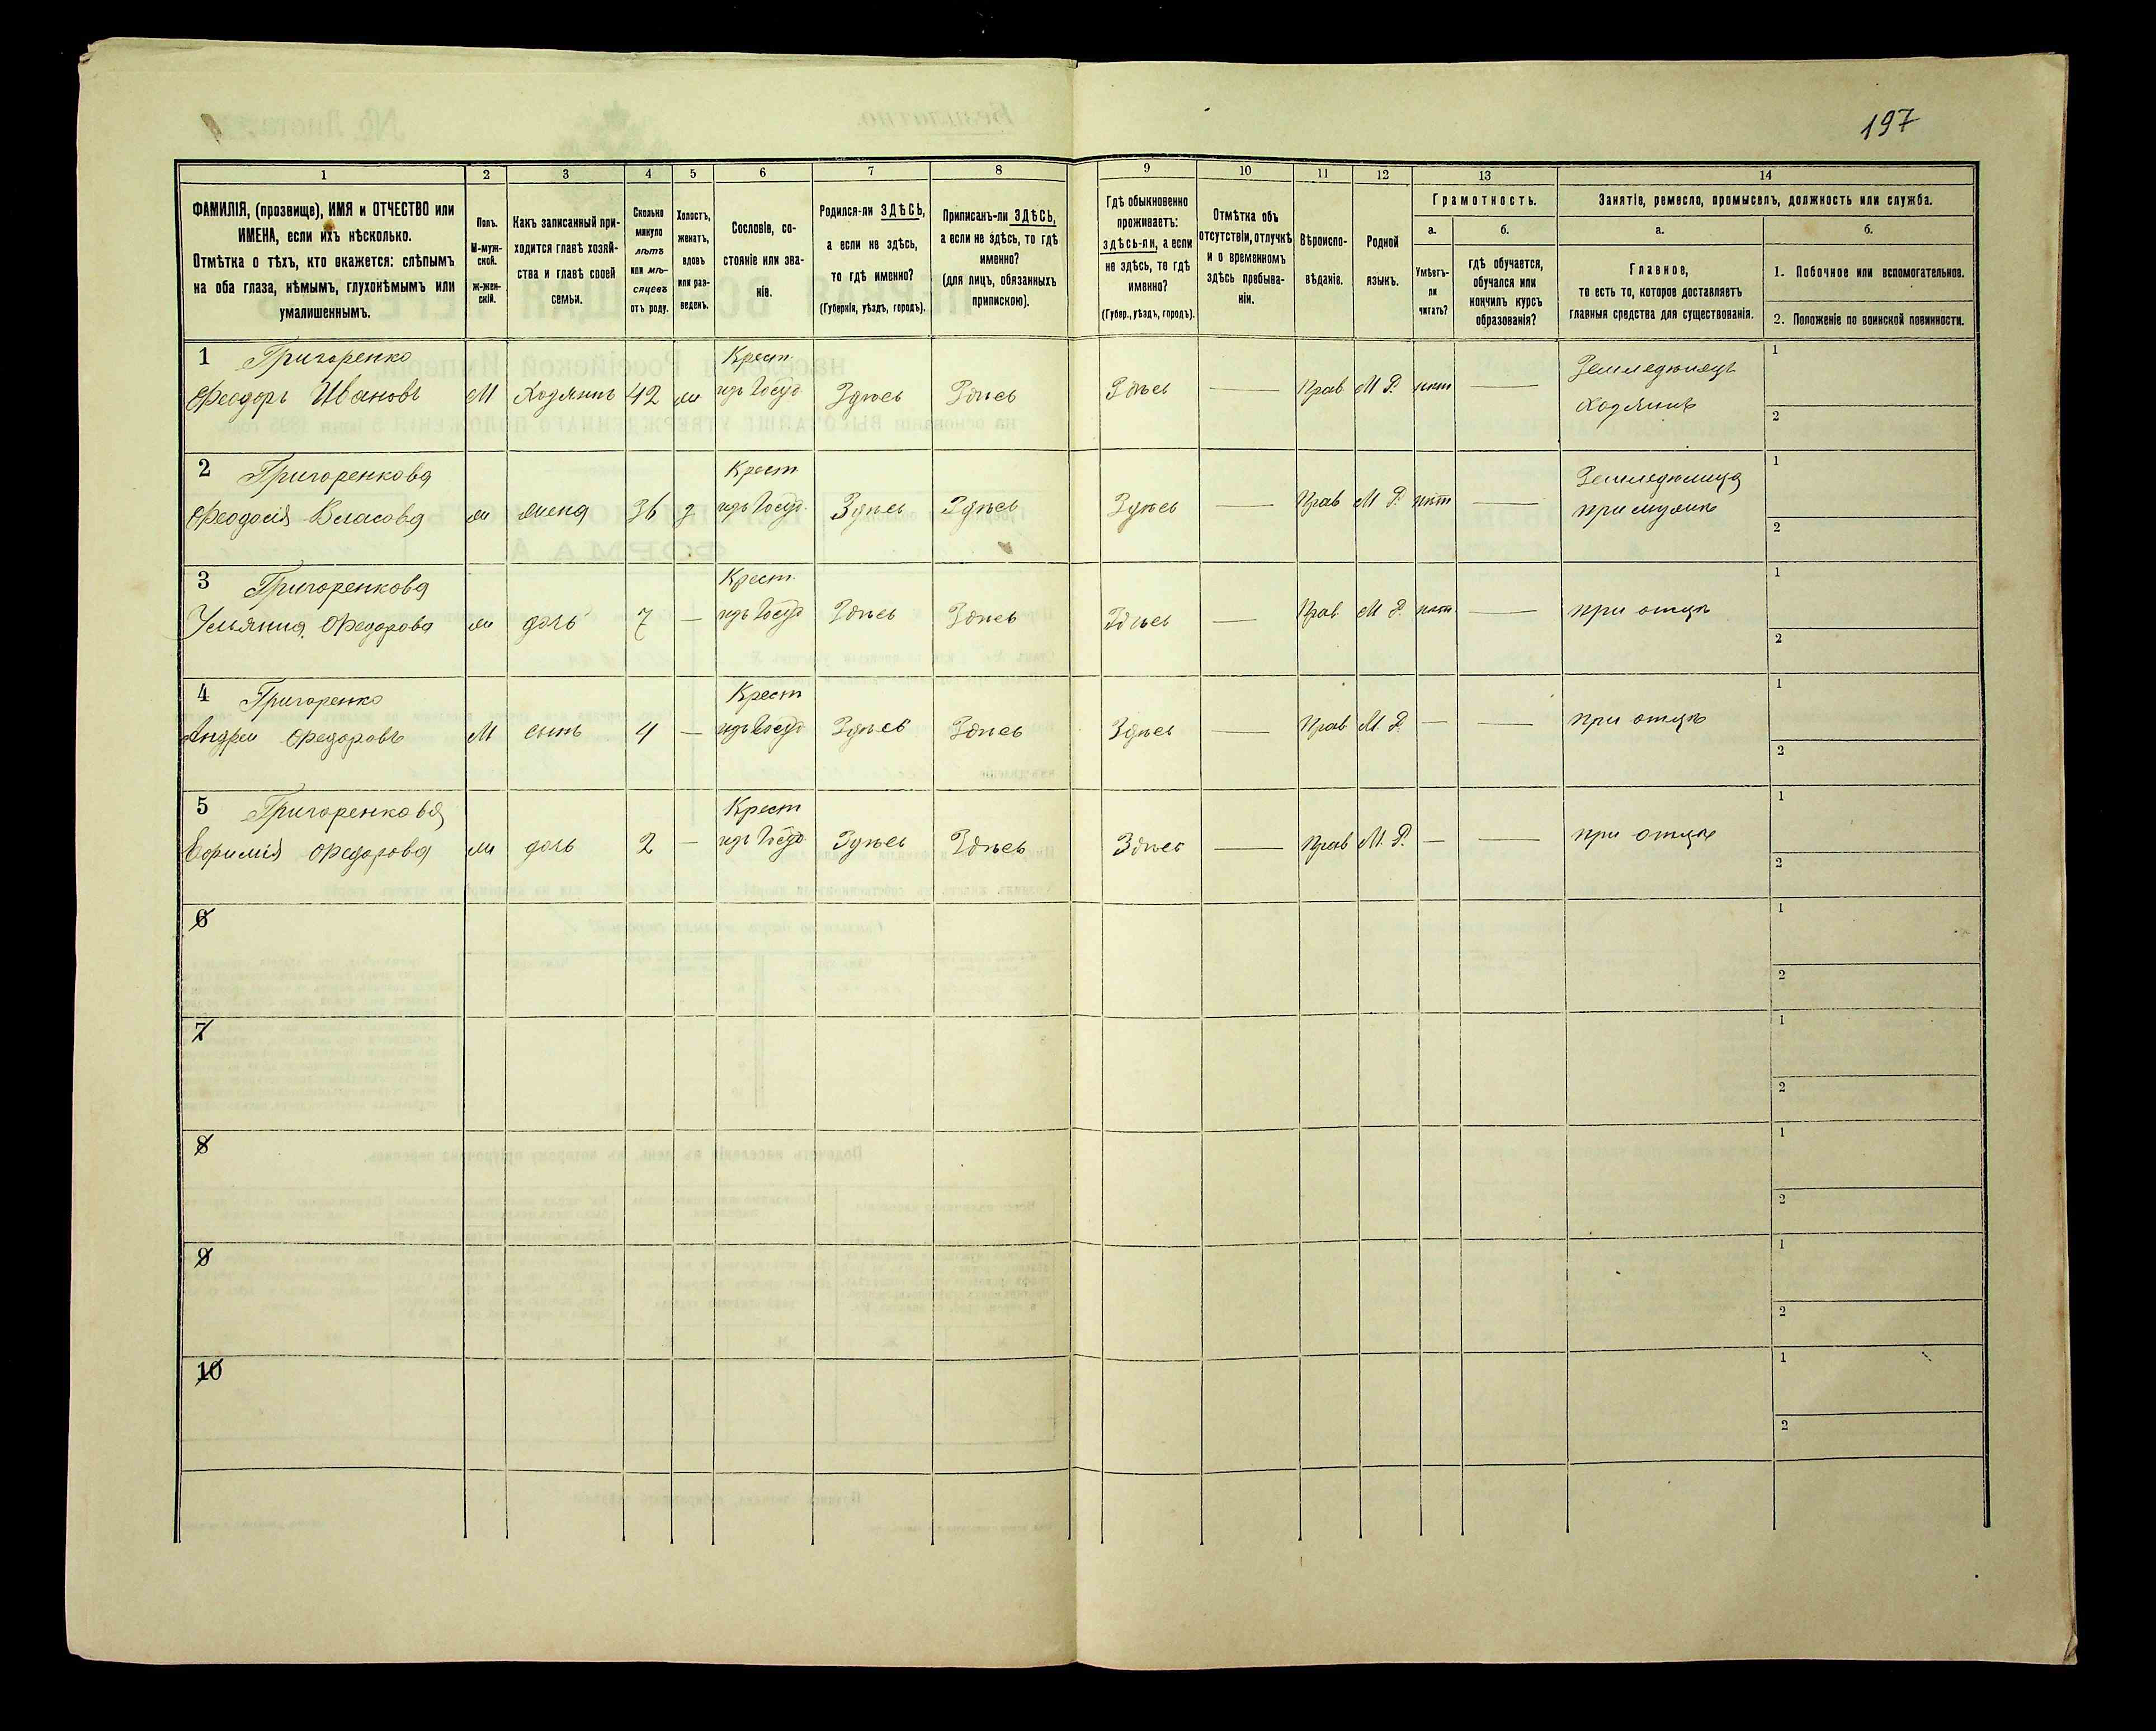 197
1 2 3 4 5 6 7 8 9 10 11 12 13 14
ФАМИЛІЯ, (прозвище), ИМЯ и ОТЧЕСТВО или
ИМЕНА, если ихъ нѣсколько.
Отмѣтка о тѣхъ, кто окажется: слѣпымъ
на оба глаза, нѣмымъ, глухонѣмымъ или
умалишеннымъ.
Полъ.
М-муж-
ской.
Ж-жен-
скій.
Какъ записанный при-
ходится главѣ хозяй-
ства и главѣ своей
семьи.
Сколько
минуло
лѣтъ
или мѣ-
сяцевъ
отъ роду.
Холостъ,
женатъ,
вдовъ
или раз-
веденъ.
Сословіе, со-
стояніе или зва-
ніе.
Родился-ли ЗДѢСЬ,
а если не здѣсь,
то гдѣ именно?
(Губернія, уѣздъ, городъ).
Приписанъ-ли ЗДѢСЬ,
а если не здѣсь, то гдѣ
именно?
(для лицъ, обязанныхъ
припискою).
Гдѣ обыкновенно
проживаетъ:
здѣсь-ли, а если
не здѣсь, то гдѣ
именно?
(Губер., уѣздъ, городъ).
Отмѣтка объ
отсутствіи, отлучкѣ
и о временномъ
здѣсь пребыва-
ніи.
Вѣроиспо-
вѣданіе.
Родной
языкъ.
Грамотность.
а.
Умѣетъ-
ли
читать?
б.
гдѣ обучается,
обучался или
кончилъ курсъ
образованія?
Занятіе, ремесло, промыселъ, должность или служба.
а.
Главное,
то есть то, которое доставляетъ
главныя средства для существованія.
б.
1. Побочное или вспомогательное.
2. Положеніе по воинской повинности.
1 Григоренко Крест. Земледѣлецъ 1
Феодоръ Ивановъ М Хозяинъ 42 ж изъ Госуд. Здѣсь Здѣсь Здѣсь — Прав М Р. нѣт — Хозяинъ 2
2 Григоренкова Крест. Земледѣлица 1
Феодосія Власова ж жена 36 з изъ Госуд. Здѣсь Здѣсь Здѣсь — Прав М Р. нѣт — при мужѣ 2
3 Григоренкова Крест. 1
Ульяния Федорова ж дочь 7 — изъ Госуд Здѣсь Здѣсь Здѣсь — Прав. М Р. нѣт. — при отцѣ 2
4 Григоренко Крест 1
Андрей Федоровъ М сынъ 4 — изъ Госуд Здѣсь Здѣсь Здѣсь — Прав М. Р. — — при отцѣ 2
5 Григоренкова Крест 1
Ефимія Федорова ж дочь 2 — изъ Госуд. Здѣсь Здѣсь Здѣсь — Прав М. Р. — — при отцѣ 2
6 1
2
7 1
2
8 1
2
9 1
2
10 1
2